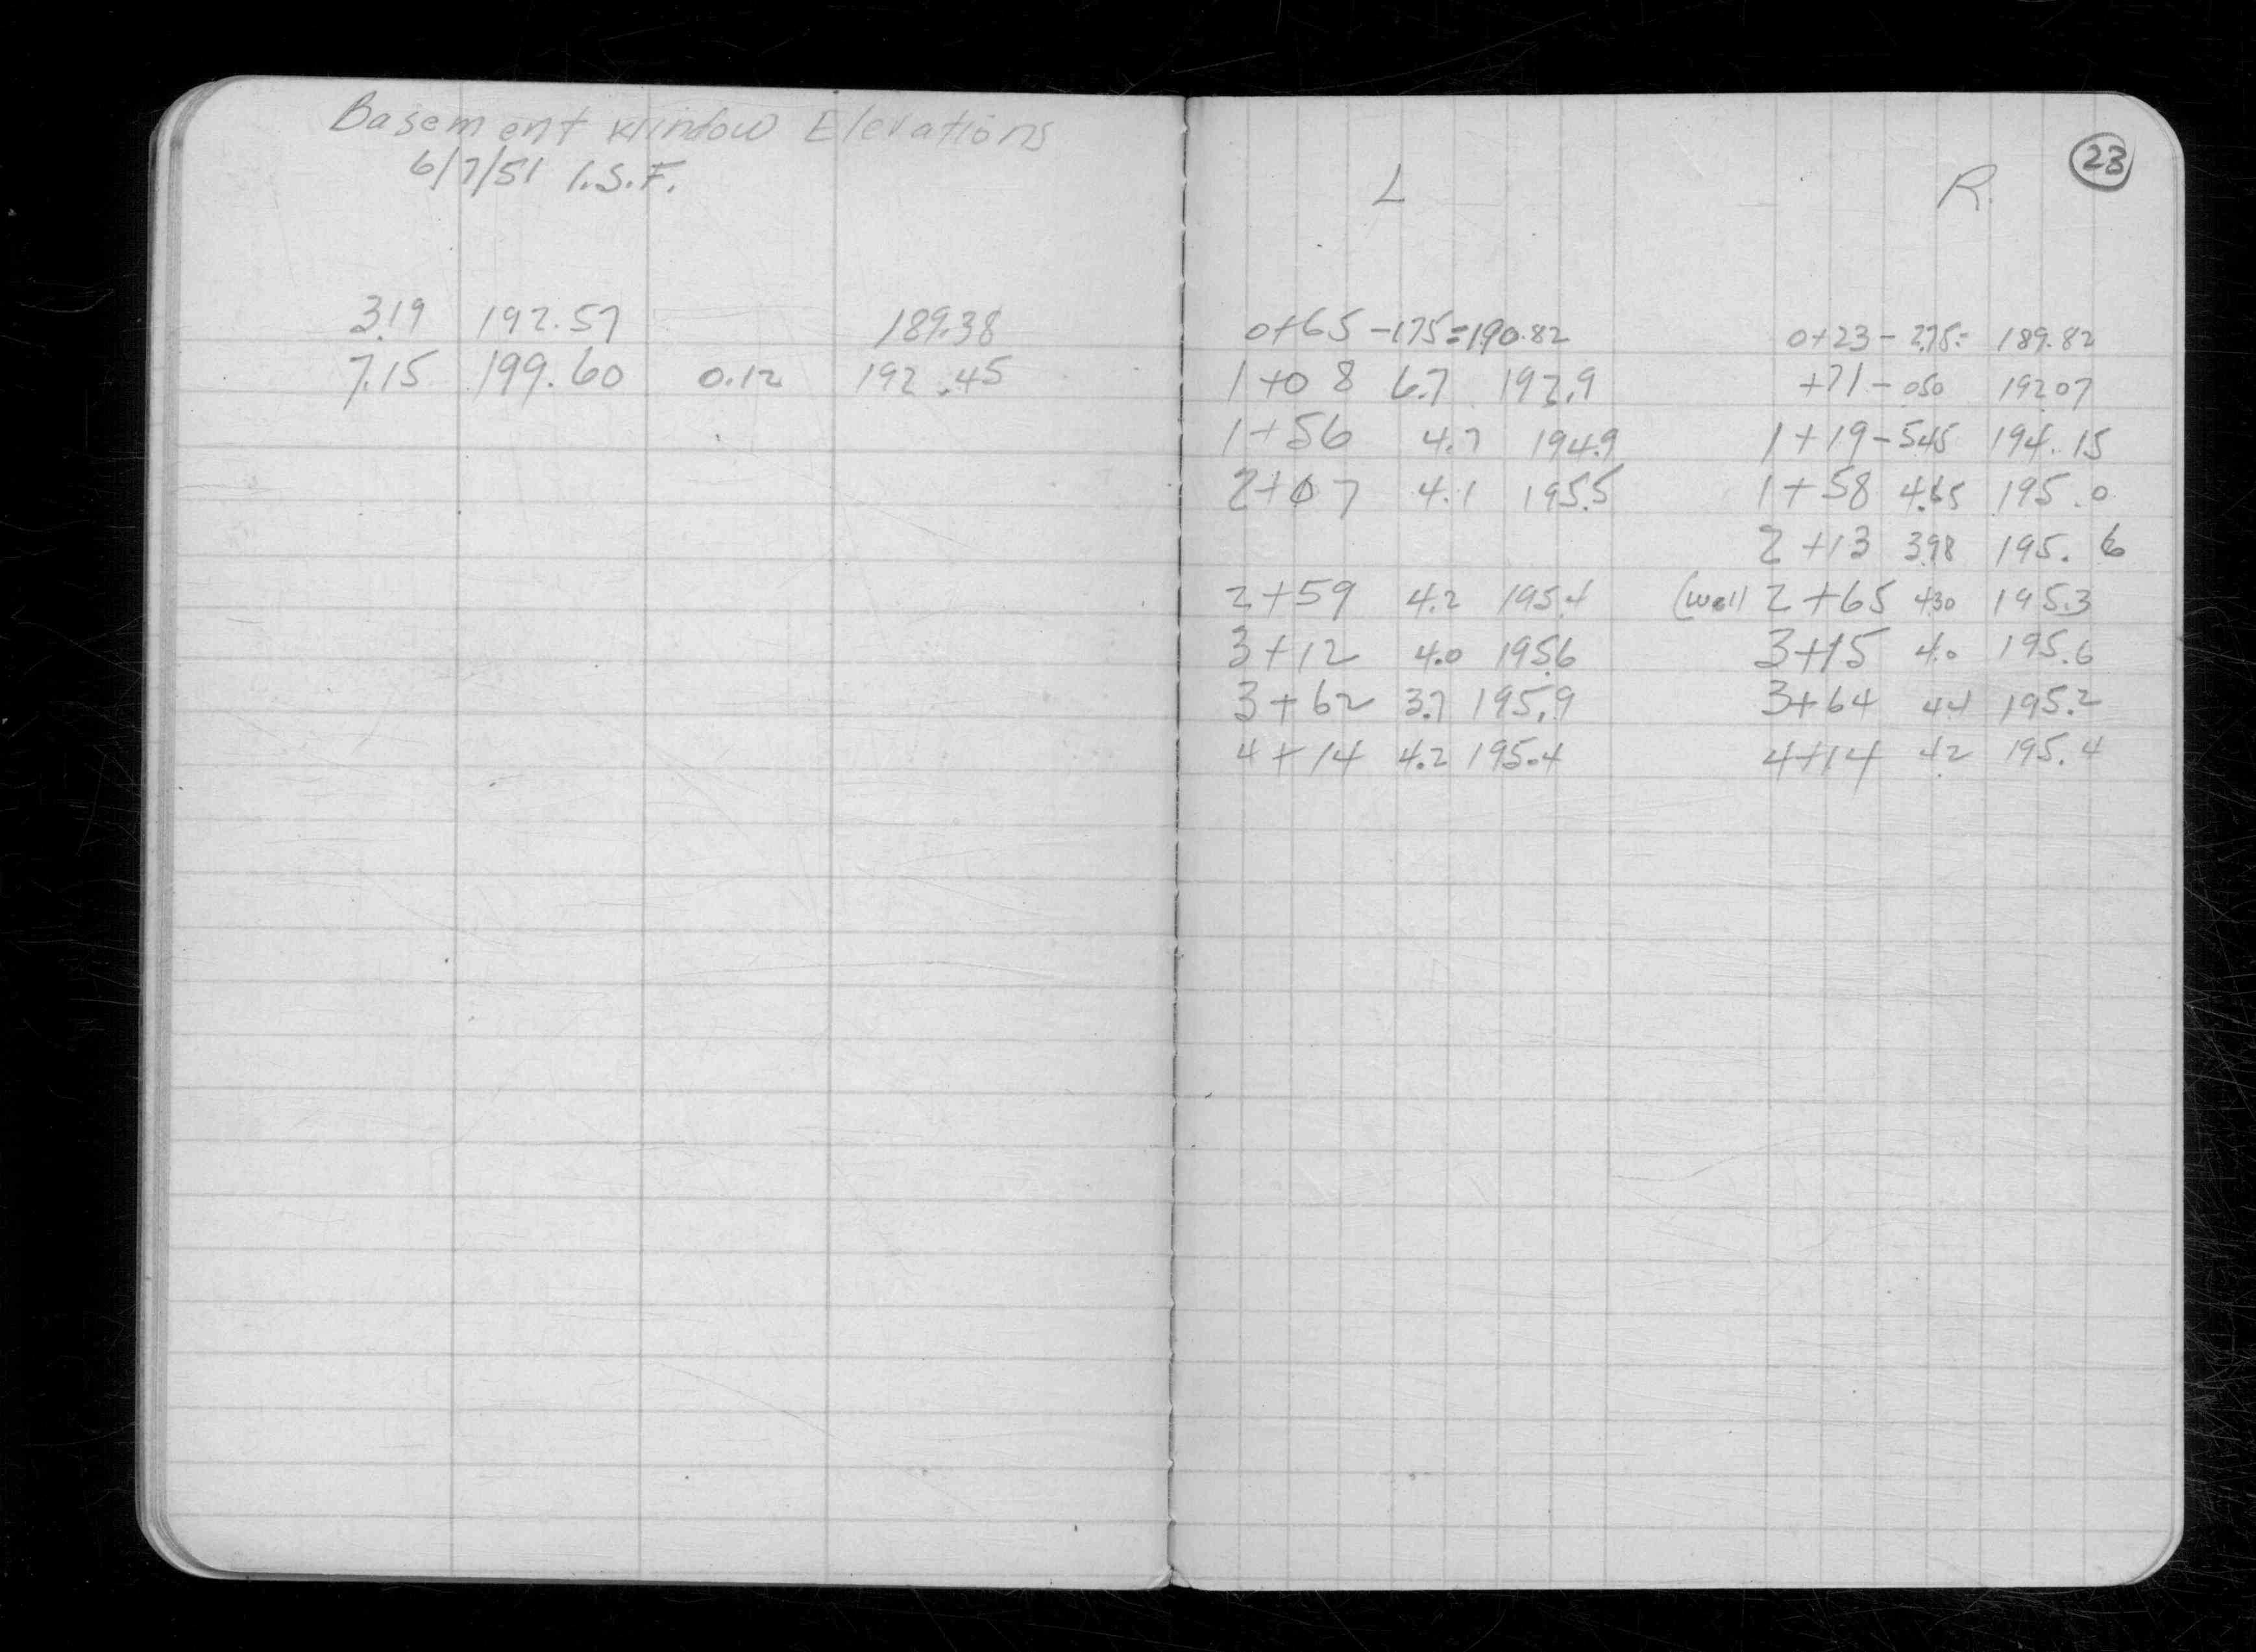 Basement Window Elevations
6/7/51 I.S.F.
3.19 192.57 189.38
7.15 199.60 0.12 192.45
23
L R.
0+65 -1.75=190.82 0+23 - 2.75= 189.82
1+08 6.7 192.9 +71 - 050 192.07
1+56 4.7 194.9 1+19 - 5.45 194.15
2+07 4.1 195.5 1+58 4.65 195.0
2+13 3.98 195.6
2+59 4.2 195.4 (Well 2+65 4.30 195.3
3+12 4.0 195.6 3+15 4.0 195.6
3+62 3.7 195.9 3+64 4.4 195.2
4+14 4.2 195.4 4+14 4.2 195.4